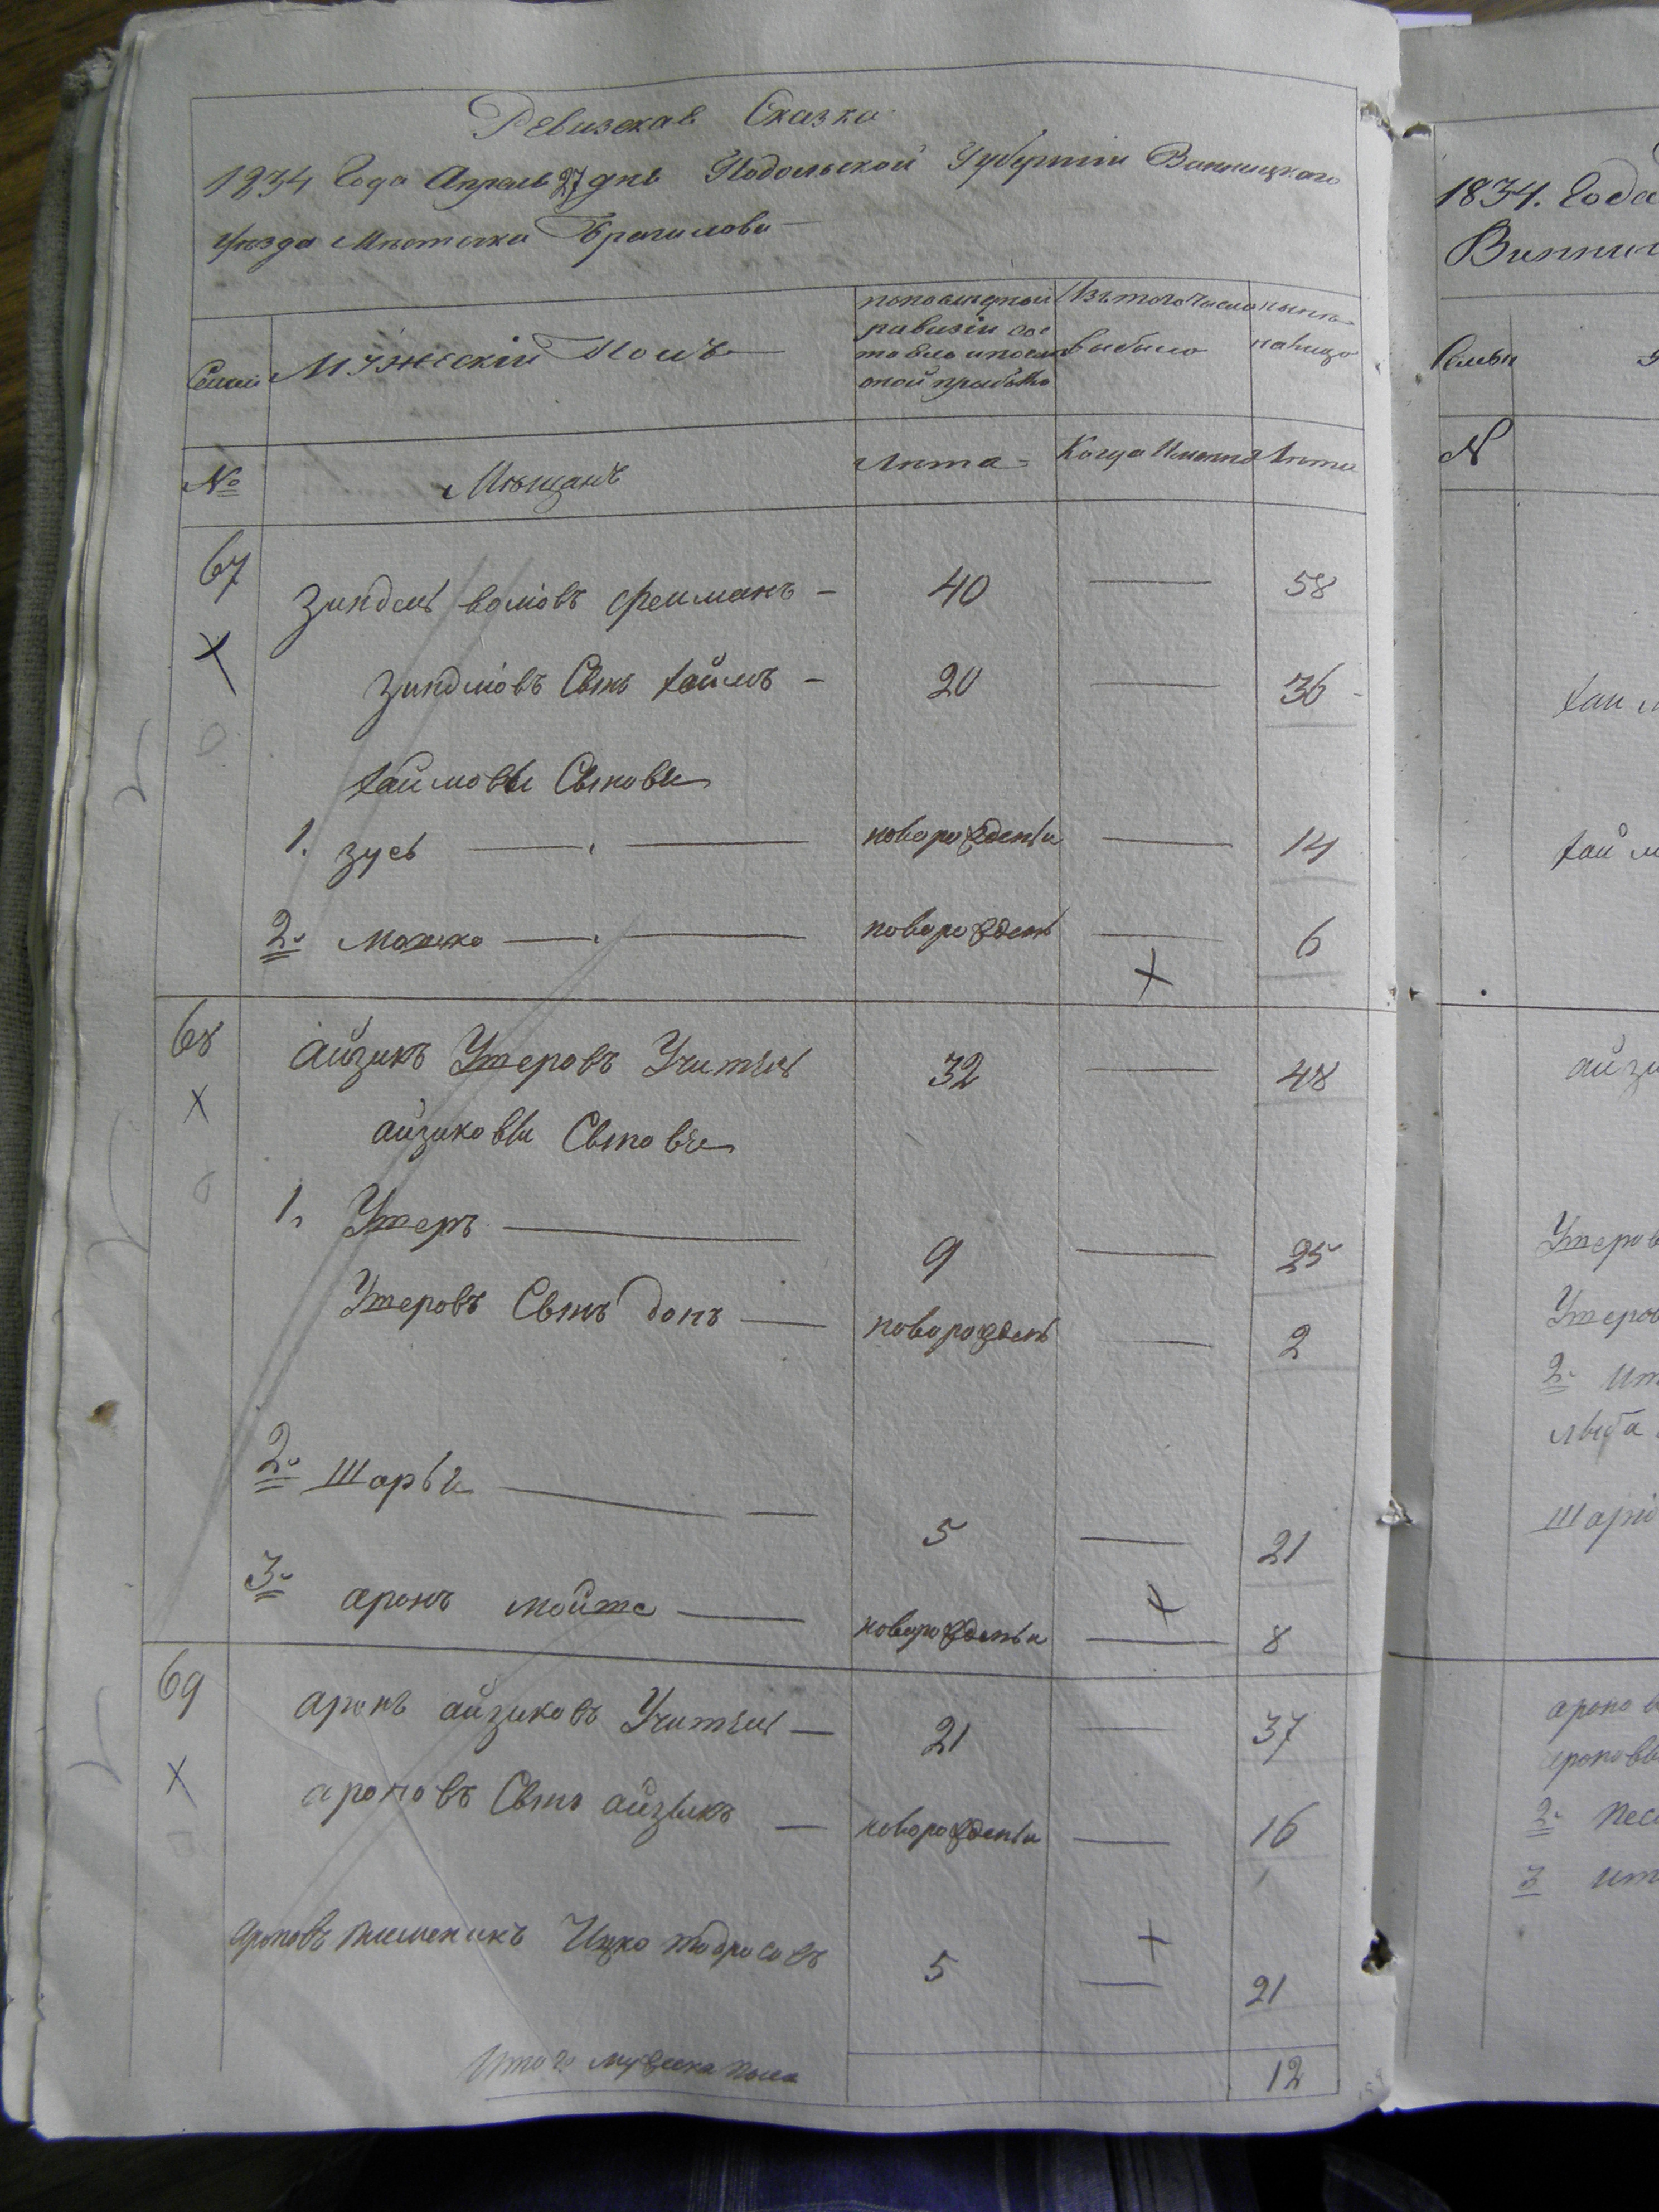 Ревизская Сказка
1834 Года Апреля 27 дня Подольской Губернии Винницкаго
уезда Местечка Браилова
Семьи
Мужескій Полъ
по последней
ревизіи сос
тояло и после
оной прибыло
Изъ того числа
выбыло
ныне
на лицо
№
Мещане
Лета
Когда Именно
Лета
67
Зиндель воліовъ феиманъ — 40 — 58
Зинделіовъ Сынъ хаимъ — 20 — 36
хаимовы Сыновья
1. зусь — новорожденый — 14
2. мошко — новорожденъ — 6
68
айзикъ Ушеровъ Учитель 32 — 48
айзиковы Сыновья
1. Ушеръ — 9 — 25
Ушеровъ Сынъ бонъ — новорожденъ — 2
2. Шарья — 5 — 21
3. аронъ мойше — новорожденый — 8
69
аронъ айзиковъ Учитель — 21 — 37
ароновъ Сынъ айзыкъ — новорожденый — 16
ароновъ племеникъ Ицко тодросовъ 5 — 21
Итого мужеска пола 12
1834. Года
Винни
Семьи
№
хаим
хайм
айзи
Ушеров
Ушеров
2.
Шаріо
ароно
ароновы
2. песя
3